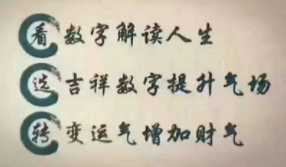 看数字解读人生
选吉祥数字提升气场
转变运气增加财气